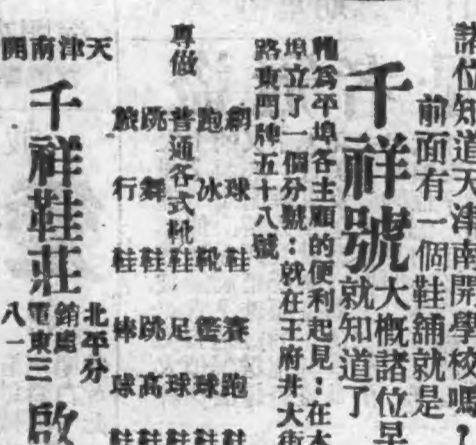 諸位知道天津南開學校嗎
前面有一個鞋舖就是
千祥號大概諸位早
就知道了
牠爲平埠各主顧的便利起見：在本
埠立了一個分號：就在王府井大街
路東門牌五十八號
專做
網球鞋 賽跑鞋
跑冰靴 籃球鞋
普通各式靴鞋 足球鞋
跳舞鞋 跳高鞋
旅行鞋 棒球鞋
天津南開
千祥鞋莊
北平分
銷處
電東三
八一
啟